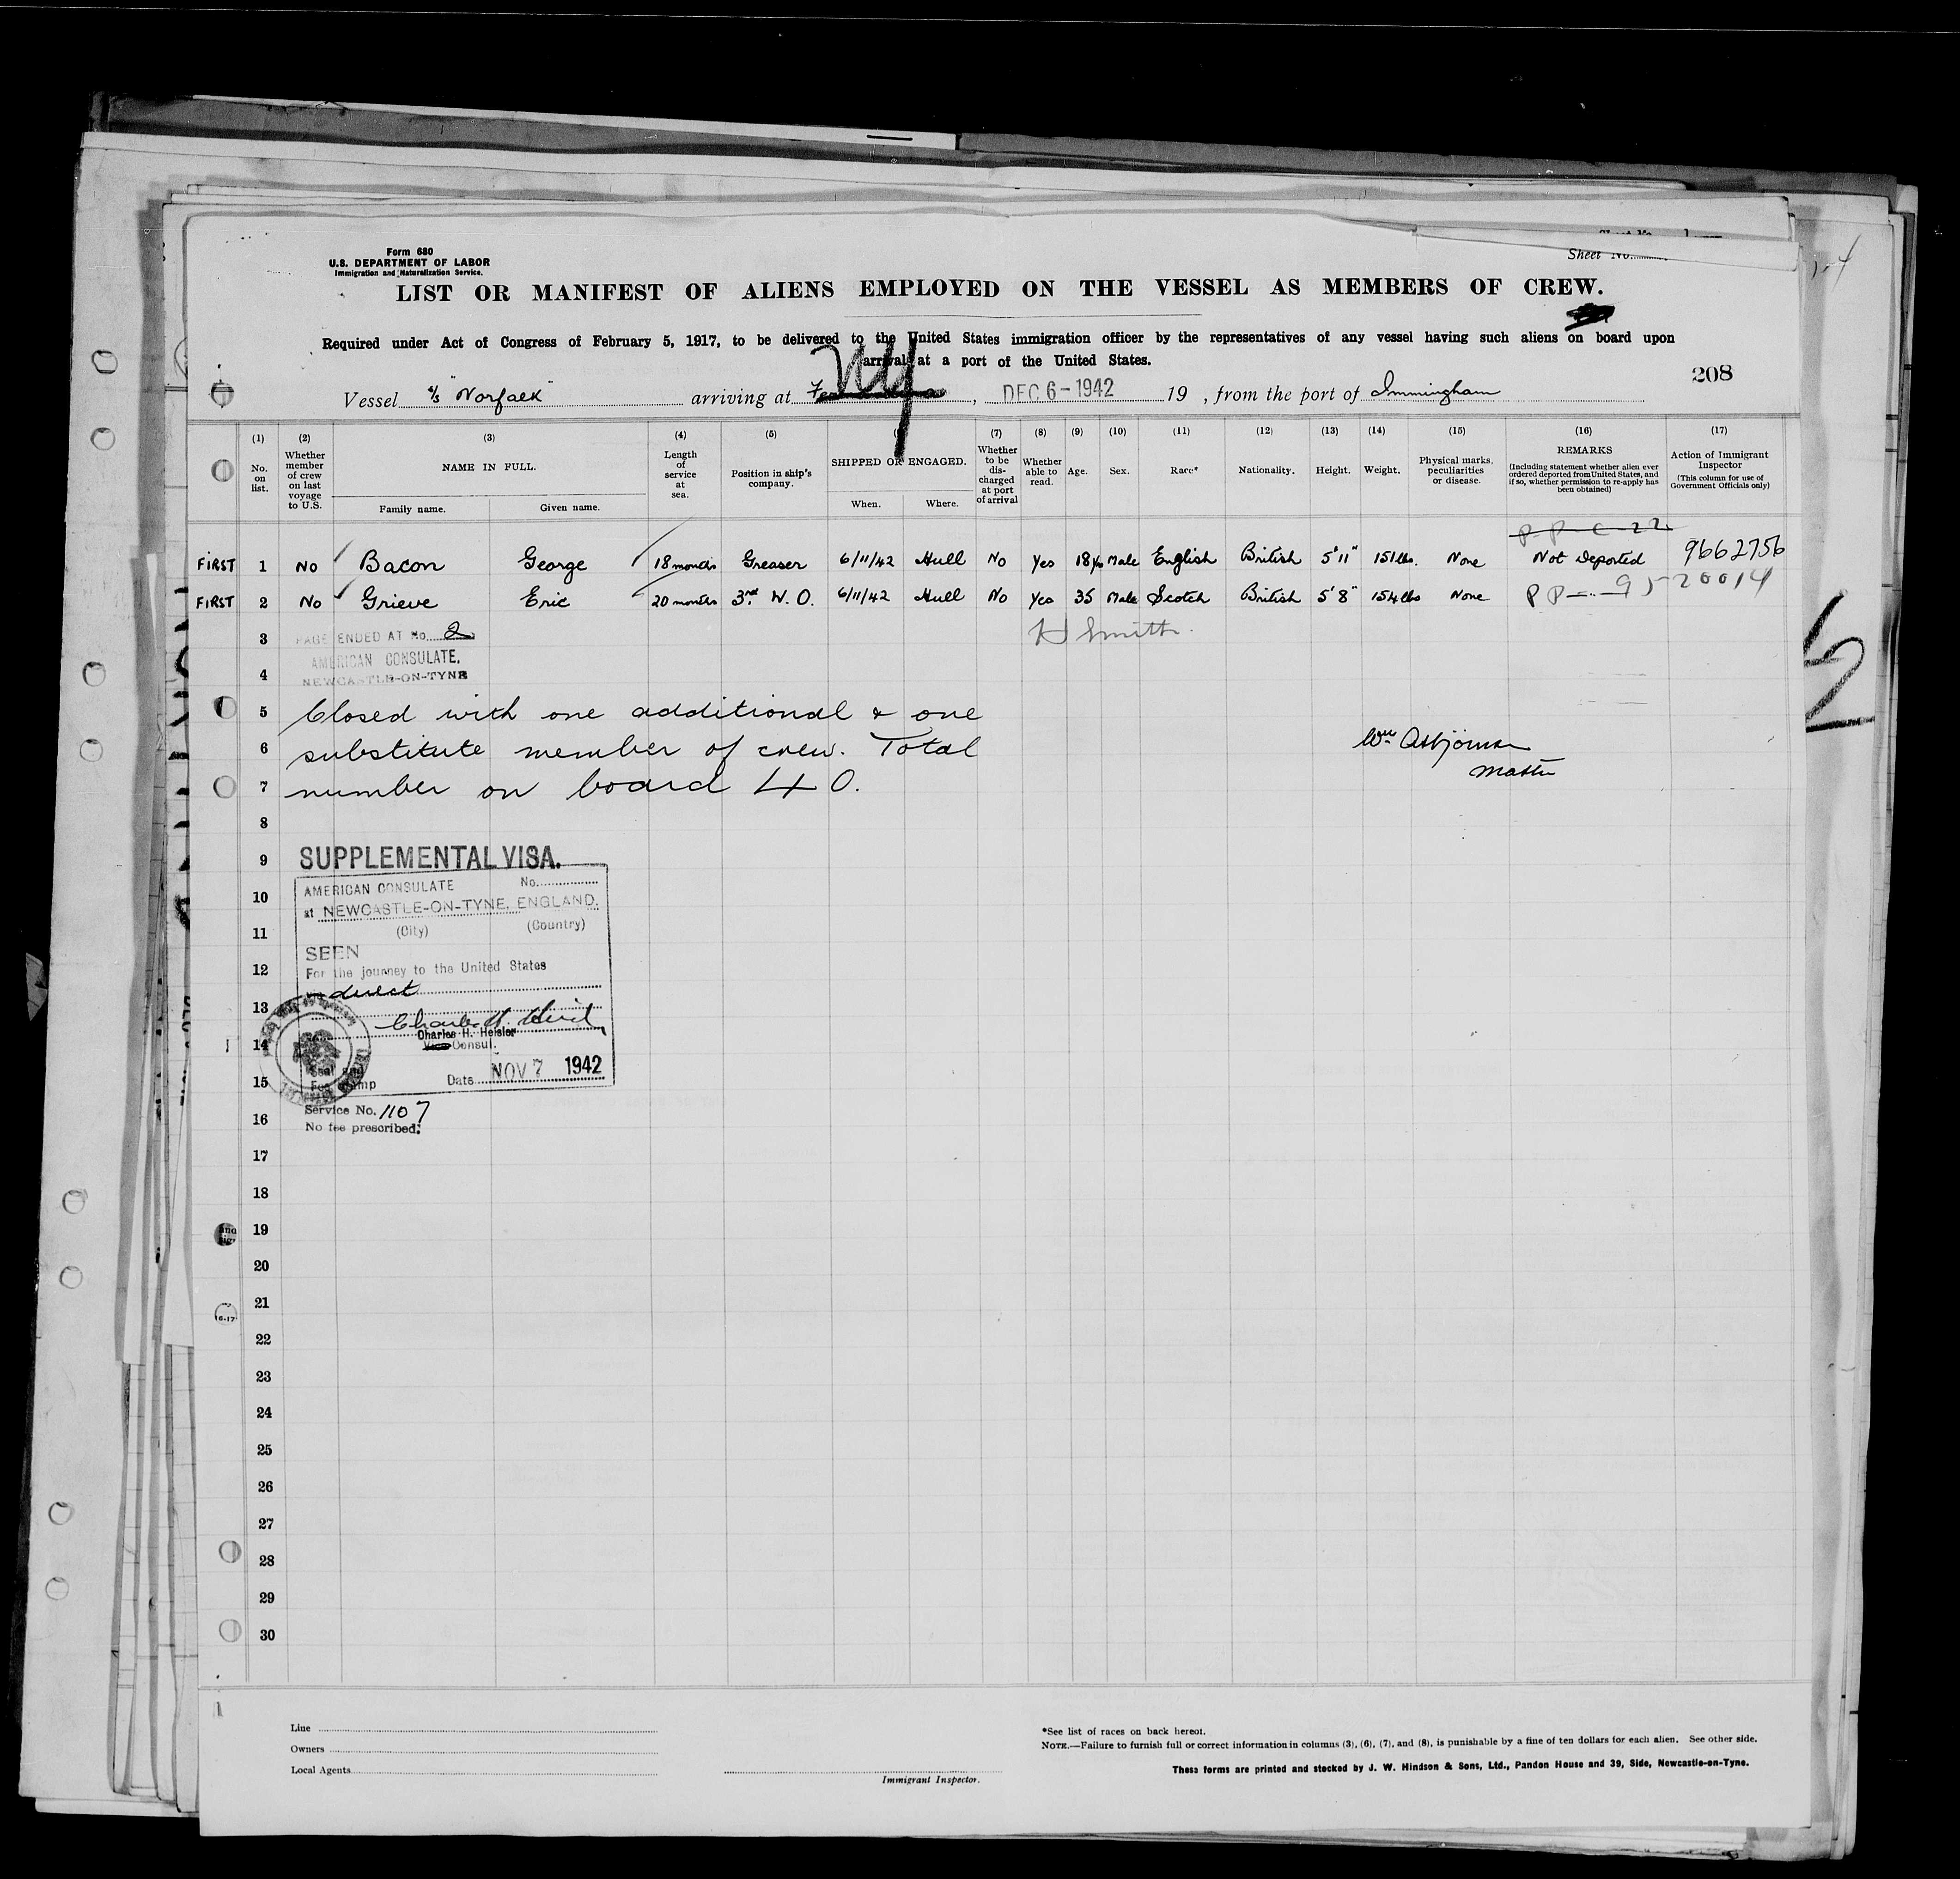 Form 680
U.S. DEPARTMENT OF LABOR
Immigration and Naturalization Service.
Sheet No.
LIST OR MANIFEST OF ALIENS EMPLOYED ON THE VESSEL AS MEMBERS OF CREW.
Required under Act of Congress of February 5, 1917, to be delivered to the United States immigration officer by the representatives of any vessel having such aliens on board upon
arrival at a port of the United States.
NY
208
Vessel s/s "Norfalk" arriving at , DEC 6-1942 19 , from the port of Immingham
(1) (2) (3) (4) (5) (7) (8) (9) (10) (11) (12) (13) (14) (15) (16) (17)
No. on list.
Whether member of crew on last voyage to U.S.
NAME IN FULL.
Family name. Given name.
Length of service at sea.
Position in ship's company.
SHIPPED OR ENGAGED.
When. Where.
Whether to be dis-charged at port of arrival
Whether able to read.
Age. Sex. Race* Nationality. Height. Weight.
Physical marks, peculiarities or disease.
REMARKS
(Including statement whether alien ever ordered deported from United States, and if so, whether permission to re-apply has been obtained)
Action of Immigrant Inspector
(This column for use of Government Officials only)
P P C-22
FIRST 1 No Bacon George 18 months Greaser 6/11/42 Hull No Yes 18 Male English British 5'11" 151 lbs. None Not Deported 9662756
FIRST 2 No Grieve Eric 20 months 3rd W. O. 6/11/42 Hull No Yes 35 Male Scotch British 5'8" 154 lbs None PP 9520014
3 PAGE ENDED AT No. 2 H Smith.
AMERICAN CONSULATE,
4 NEWCASTLE-ON-TYNE
5 Closed with one additional & one
6 substitute member of crew. Total
Wm Asbjornsen
Master
7 number on board 40.
8
9 SUPPLEMENTAL VISA.
10 AMERICAN CONSULATE No.
at NEWCASTLE-ON-TYNE, ENGLAND.
11 (City) (Country)
SEEN
12 For the journey to the United States
direct
13 Charles H. Heisler
Charles H. Heisler
14 Vice Consul.
Seal and
15 Fee Stamp Date NOV 7 1942
16 Service No. 1107
No fee prescribed.
17
18
19
20
21
22
23
24
25
26
27
28
29
30
Line
Owners
Local Agents
Immigrant Inspector.
*See list of races on back hereof.
NOTE.—Failure to furnish full or correct information in columns (3), (6), (7), and (8), is punishable by a fine of ten dollars for each alien. See other side.
These forms are printed and stocked by J. W. Hindson & Sons, Ltd., Pandon House and 39, Side, Newcastle-on-Tyne.